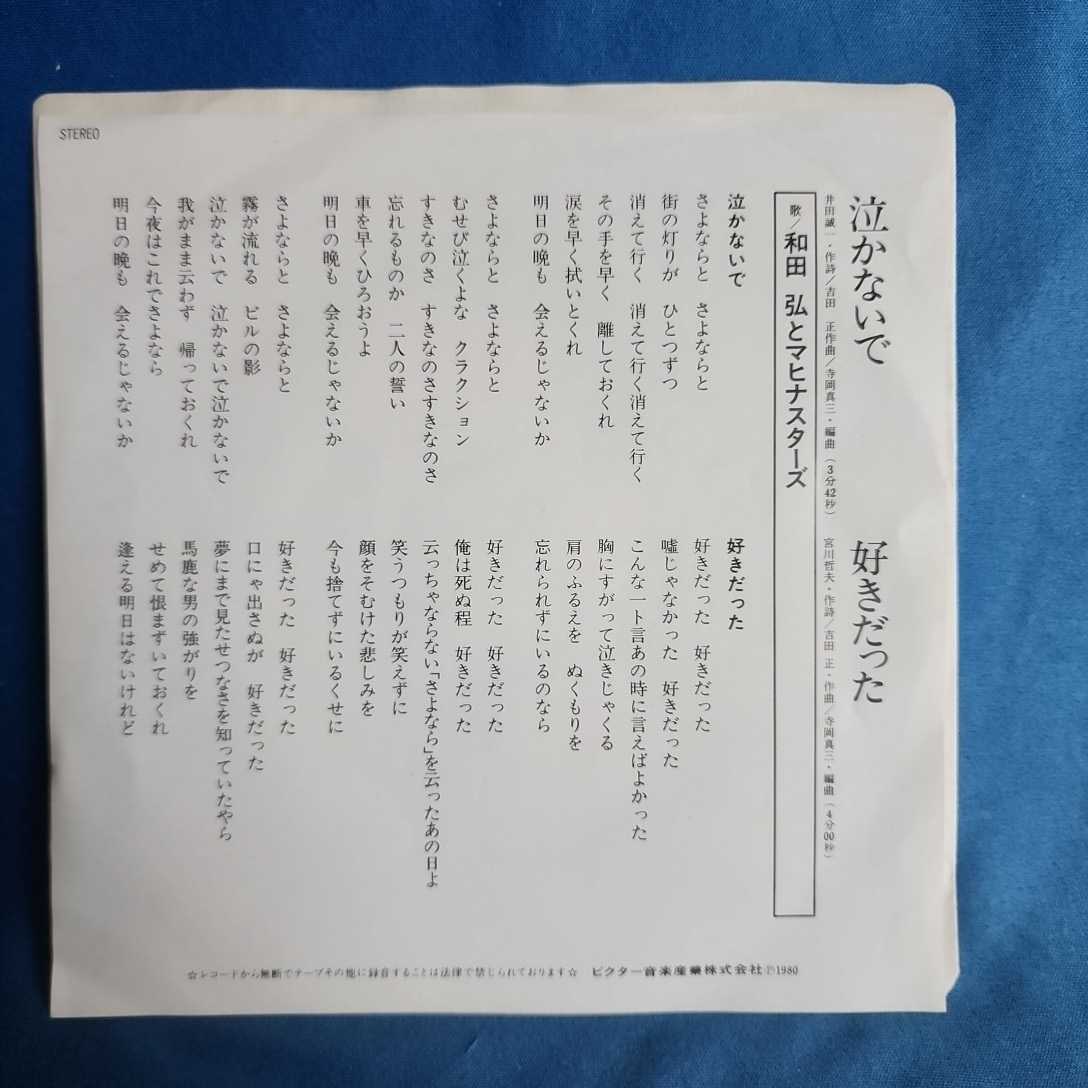 STEREO
泣かないで
井田誠一・作詩/吉田　正作曲/寺岡真三・編曲（3分42秒）
好きだった
宮川哲夫・作詩/吉田　正・作曲/寺岡真三・編曲（4分00秒）
歌/和田　弘とマヒナスターズ
泣かないで
さよならと　さよならと
街の灯りが　ひとつずつ
消えて行く　消えて行く消えて行く
その手を早く　離しておくれ
涙を早く拭いとくれ
明日の晩も　会えるじゃないか
さよならと　さよならと
むせび泣くよな　クラクション
すきなのさ　すきなのさすきなのさ
忘れるものか　二人の誓い
車を早くひろおうよ
明日の晩も　会えるじゃないか
さよならと　さよならと
霧が流れる　ビルの影
泣かないで　泣かないで泣かないで
我がまま云わず　帰っておくれ
今夜はこれでさよなら
明日の晩も　会えるじゃないか
好きだった
好きだった　好きだった
嘘じゃなかった　好きだった
こんな一ト言あの時に言えばよかった
胸にすがって泣きじゃくる
肩のふるえを　ぬくもりを
忘れられずにいるのなら
好きだった　好きだった
俺は死ぬ程　好きだった
云っちゃならない「さよなら」を云ったあの日よ
笑うつもりが笑えずに
顔をそむけた悲しみを
今も捨てずにいるくせに
好きだった　好きだった
口にゃ出さぬが　好きだった
夢にまで見たせつなさを知っていたやら
馬鹿な男の強がりを
せめて恨まずいておくれ
逢える明日はないけれど
☆レコードから無断でテープその他に録音することは法律で禁じられております☆　ビクター音楽産業株式会社Ⓟ1980